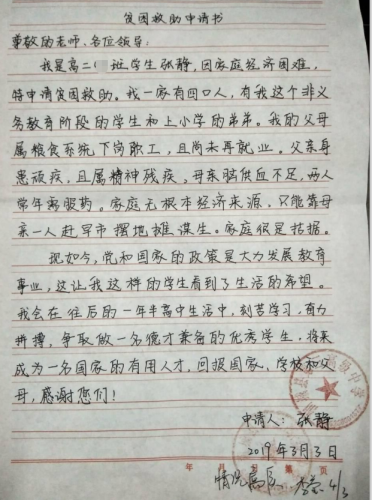 贫困救助申请书
尊敬的老师、各位领导:
我是高二( 班学生张静,因家庭经济困难,
特申请贫困救助。我一家有四口人,有我这个非义
务教育阶段的学生和上小学的弟弟。我的父母
属粮食系统下岗职工,且尚未再就业。父亲身
患顽疾,且属精神残疾。母亲脑供血不足,两人
常年需服药。家庭无根本经济来源,只能靠母
亲一人赶早市摆地摊谋生。家庭很是拮据。
现如今,党和国家的政策是大力发展教育
事业,这让我这样的学生看到了生活的希望。
我会在往后的一年半高中生活中,刻苦学习,奋力
拼搏,争取做一名德才兼备的优秀学生,将来
成为一名国家的有用人才,回报国家、学校和父
母,感谢您们!
申请人:张静
2019年3月3日
年 月 日 第 页
情况属实 4/3